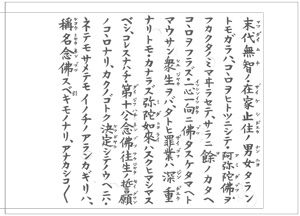 末代無智ノ在家止住ノ男女タラン
トモガラハコヽロヲヒトツニシテ阿弥陀佛ヲ
フカクタノミマヰラセテ、サラニ餘ノカタヘ
コヽロヲフラズ一心一向ニ佛タスケタマヘト
マウサン衆生ヲバタトヒ罪業ハ深重
ナリトモカナラズ弥陀如來ハスクヒマシマス
ベシコレスナハチ第十八ノ念佛往生ノ誓願
ノコヽロナリ、カクノゴトク決定シテノウヘニハ・
ネテモサメテモイノチノアランカギリハ、
稱名念佛スベキモノナリ、アナカシコ〳〵